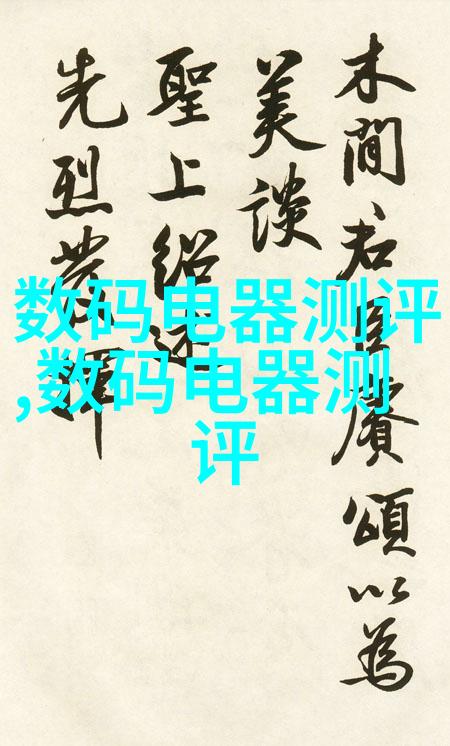 木間君臣賡頌以為
美談
聖上紹述
先烈發揮
数码电器测评
,数码电器测
评